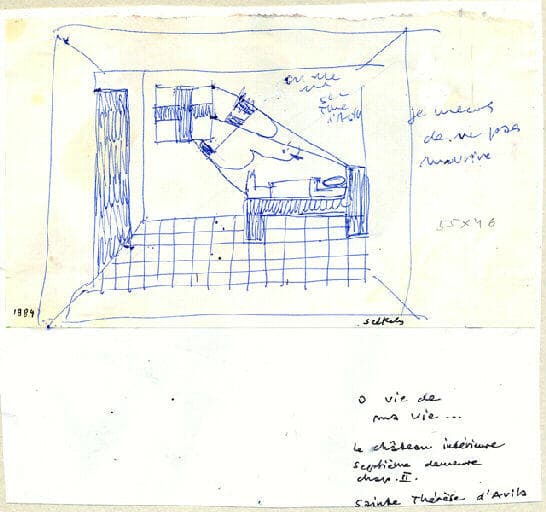 o vie
vie
Ste
d'Avila
je meurs
de ne pas
mourire
55x46
1984
o vie de
ma vie...
le château intérieure
septième demeure
chap. II.
sainte Thérèse d'Avila